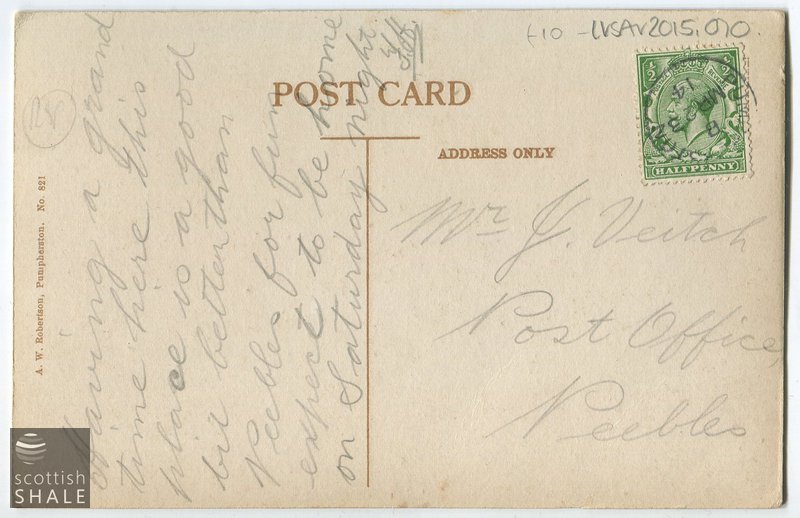 LVSAV2015.070.
POST CARD
ADDRESS ONLY
HALFPENNY
Having a grand
time here this
place is a good
bit better than
Peebles for fun
expect to be home
on Saturday night.
Mr J. Veitch
Post Office,
Peebles
A. W. Robertson, Pumpherston. No. 821
scottish
SHALE